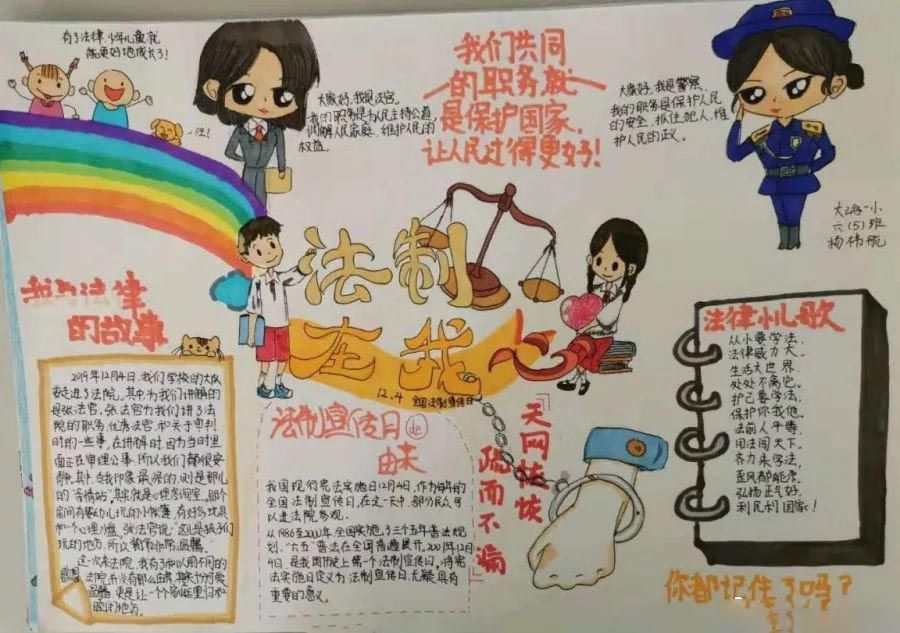 有了法律,少年儿童就
能更好地成长了!
汪!
大家好,我是法官。
我的职务是为人民主持公道,
调解人民家庭,维护人民的
权益。
我们共同
的职务就
是保护国家,
让人民过得更好!
大家好,我是警察,
我的职务是保护人民
的安全,抓住犯人,维
护人民的正义。
六(5)班
法制
在我心
12.4 全国法制宣传日
我与法律
的故事
2019年12月4日,我们学校的大队
委走进了法院。其中为我们讲解的
是张法官。张法官为我们讲了法
院的职务,
时的一些事。在讲解时,因为当时里
面正在审理公事,所以我们都很安
静。其中,令我印象最深的,则是那儿
间有
和一个心理沙盘。张法官说:"这是孩子们
玩的地方,所以装饰非常温馨。
这一次来法院,我有了和以前不同的
感想。
温馨,更是让一个个家庭重归和
法制宣传日的
由来
我国现行宪法实施日12月4日,作为每年的
全国法制宣传日,在这一天中,部分民众可
以进法院参观。
从1986至2000年,全国实施了三个五年普法规
划,"六五"普法在全国普遍展开,2001年12月
4日,是我国历史上第一个法制宣传日。将宪
法实施日定义为法制宣传日,无疑具有
重要的意义。
「天网恢恢
疏而不漏」
法律小儿歌
从小要学法,
法律威力大。
生活大世界,
处处不离它。
护己要学法,
保护你我他。
法前人平等,
用法闯天下。
齐力来学法,
歪风都能杀。
弘扬正气好,
利民利国家!
你都记住了吗?